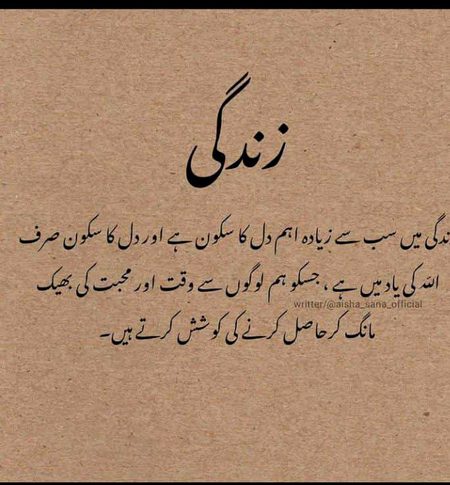 زندگی
ندگی میں سب سے زیادہ اہم دل کا سکون ہے اور دل کا سکون صرف
اللہ کی یاد میں ہے ، جسکو ہم لوگوں سے وقت اور محبت کی بھیک
writter/@aisha_sana_official
مانگ کر حاصل کرنے کی کوشش کرتے ہیں۔